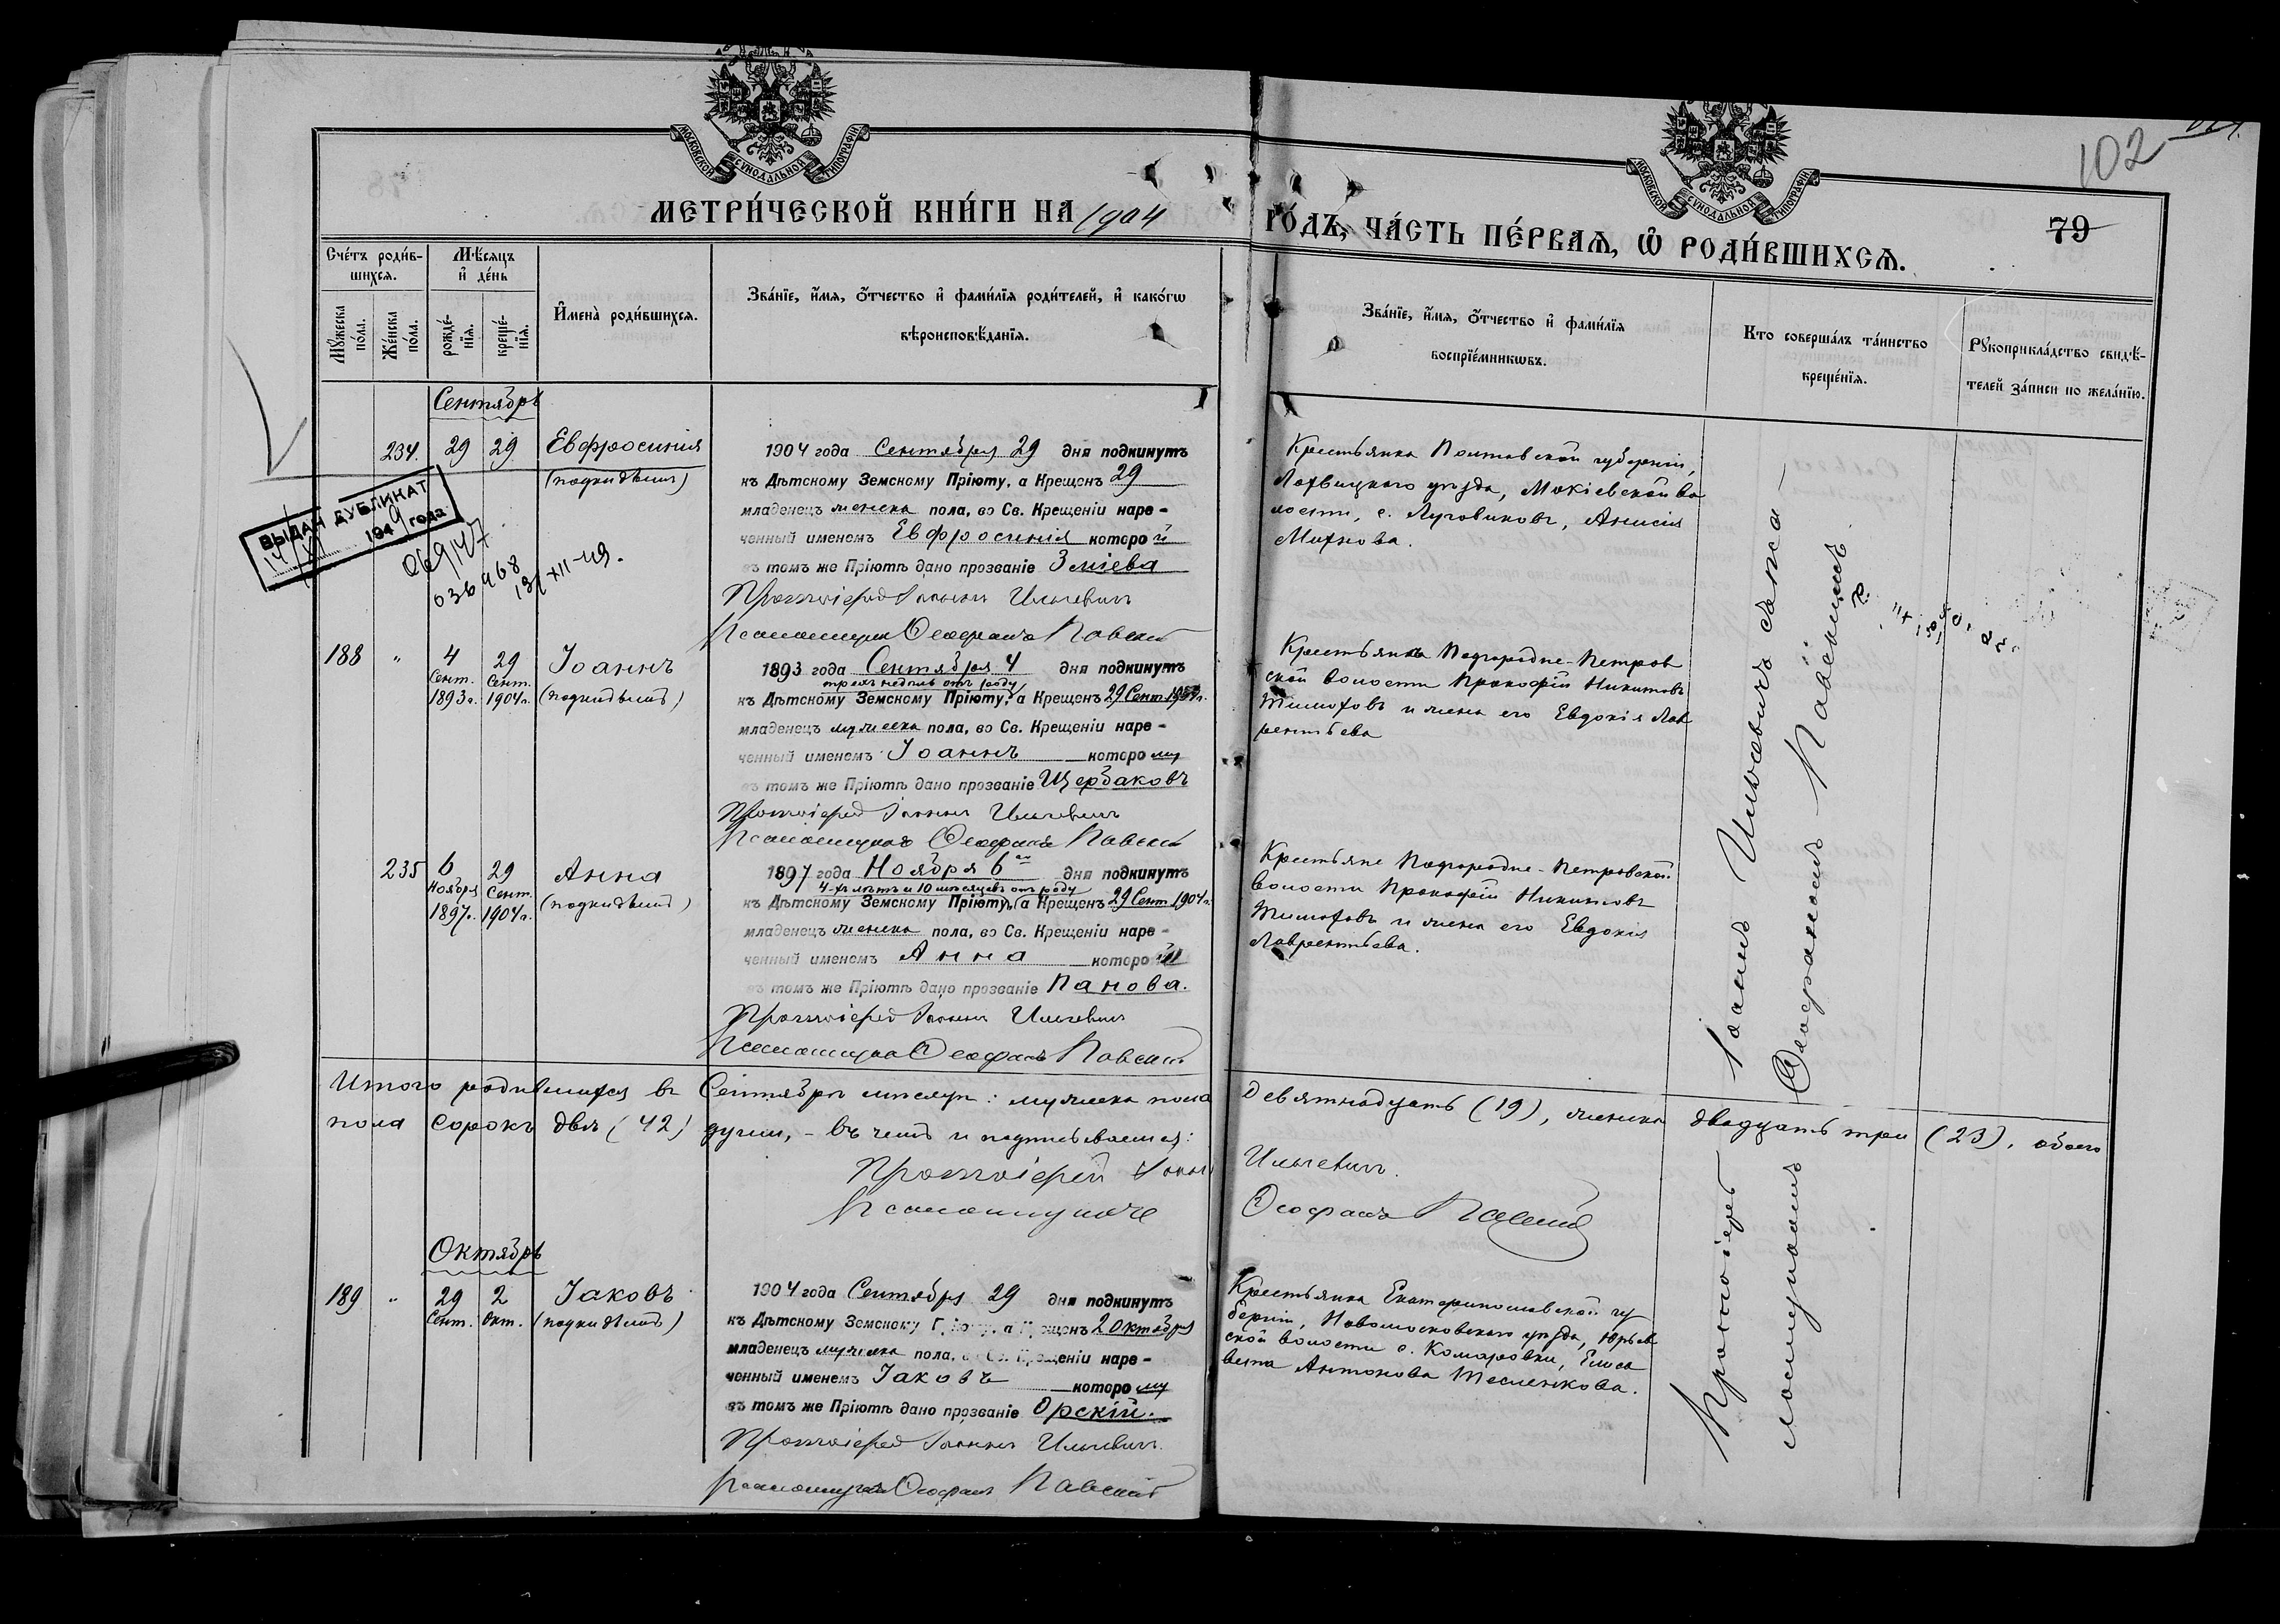 МОСКОВСКОЙ СѴНОДАЛЬНОЙ ТИПОГРАФІИ
МОСКОВСКОЙ СѴНОДАЛЬНОЙ ТИПОГРАФІИ
102
79
МЕТРИ́ЧЕСКОЙ КНИ́ГИ НА 1904 ГО́ДЪ, ЧА́СТЬ ПЕ́РВАѦ, Ѡ҆ РОДИ́ВШИХСѦ.
Сче́тъ роди́в-
шихсѧ.
Мꙋжеска по́ла.
Же́нска по́ла.
Мѣ́сѧцъ
и҆ де́нь
рожде́-
нїѧ.
креще́-
нїѧ.
И҆мена̀ роди́вшихсѧ.
Зва́нїе, и҆́мѧ, ѻ҆́тчество и҆ фами́лїѧ роди́телей, и҆ како́гѡ
вѣроисповѣ́данїѧ.
Зва́нїе, и҆́мѧ, ѻ҆́тчество и҆ фами́лїѧ
воспрїе́мникѡвъ.
Кто соверша́лъ та́инство
креще́нїѧ.
Рꙋкоприкла́дство свидѣ́-
телей за́писи по жела́нїю.
Сентябрь
234. 29 29 Евфросинія
(подкидышъ)
1904 года Сентября 29 дня подкинутъ
къ Дѣтскому Земскому Пріюту, а Крещенъ 29
младенецъ женска пола, во Св. Крещеніи наре-
ченный именемъ Евфросинія которой
въ томъ же Пріютѣ дано прозваніе Зміева
Протоіерей Іоаннъ Ильевичъ
Псаломщикъ Ѳеофанъ Павскій
Крестьянка Полтавской губерніи,
Лохвицкаго уѣзда, Мокіевской во
лости, с. Луговиковъ, Анисія
Михнова.
ВЫДАН ДУБЛИКАТ
14/XI 1949 года
069147
036968
13/XII-49.
188 " 4 Сент. 1893 г. 29 Сент. 1904 г. Іоаннъ
(подкидышъ)
1893 года Сентября 4 дня подкинутъ
трехъ недѣль отъ роду
къ Дѣтскому Земскому Пріюту, а Крещенъ 29 Сент. 1904 г.
младенецъ мужеска пола, во Св. Крещеніи наре-
ченный именемъ Іоаннъ которому
въ томъ же Пріютѣ дано прозваніе Щербаковъ
Протоіерей Іоаннъ Ильевичъ
Псаломщикъ Ѳеофанъ Павскій
Крестьянинъ Подгородне-Петров
ской волости Прокофій Никитовъ
Тимоховъ и жена его Евдокія Лав
рентьева
235 6 Ноября 1897 г. 29 Сент. 1904 г. Анна
(подкидышъ)
1897 года Ноября 6го дня подкинутъ
4-хъ лѣтъ и 10 мѣсяцевъ отъ роду
къ Дѣтскому Земскому Пріюту, а Крещенъ 29 Сент. 1904 г.
младенецъ женска пола, во Св. Крещеніи наре-
ченный именемъ Анна которой
въ томъ же Пріютѣ дано прозваніе Панова.
Протоіерей Іоаннъ Ильевичъ
Псаломщикъ Ѳеофанъ Павскій
Крестьяне Подгородне-Петровской
волости Прокофій Никитовъ
Тимоховъ и жена его Евдокія
Лаврентьева.
Итого родившихся въ Сентябрѣ мѣсяцѣ: мужеска пола Девятнадцать (19), женска двадцать три (23), обоего
пола сорокъ два (42) души, – въ чемъ и подписываемся:
Протоіерей Іоаннъ Ильевичъ.
Псаломщикъ Ѳеофанъ Павскій
Октябрь
189 " 29 Сент. 2 Окт. Іаковъ
(подкидышъ)
1904 года Сентября 29 дня подкинутъ
къ Дѣтскому Земскому Пріюту, а Крещенъ 2 Октября
младенецъ мужеска пола, во Св. Крещеніи наре-
ченный именемъ Іаковъ которому
въ томъ же Пріютѣ дано прозваніе Орскій.
Протоіерей Іоаннъ Ильевичъ
Псаломщикъ Ѳеофанъ Павскій
Крестьянка Екатеринославской гу
берніи, Новомосковскаго уѣзда, Юрьев
ской волости с. Комаровки, Елиса
вета Антонова Тесленкова.
Протоіерей Іоаннъ Ильевичъ
псаломщикомъ Ѳеофаномъ Павскимъ